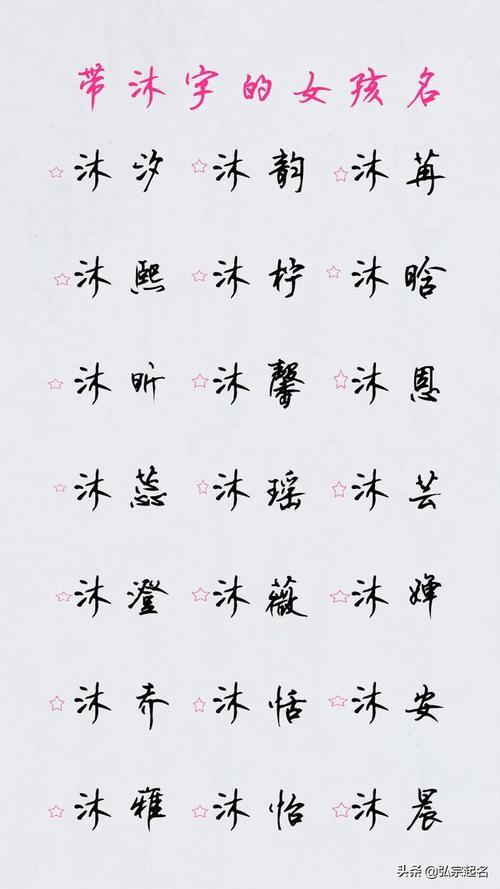 带沐字的女孩名
☆沐汐 ☆沐韵 ☆沐苒
☆沐熙 ☆沐柠 ☆沐晗
☆沐昕 ☆沐馨 ☆沐恩
☆沐蕊 ☆沐瑶 ☆沐芸
☆沐澄 ☆沐薇 ☆沐婵
☆沐乔 ☆沐恬 ☆沐安
☆沐雅 ☆沐怡 ☆沐晨
头条 @弘宗起名